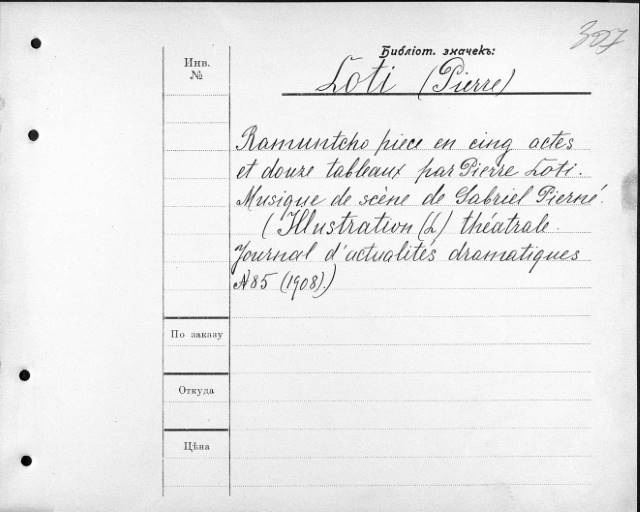 327
Библіот. значекъ:
Инв.
№
Loti (Pierre)
Ramuntcho pièce en cinq actes
et douze tableaux par Pierre Loti.
Musique de scène de Gabriel Pierné.
(Illustration (L) théatrale.
Journal d'actualités dramatiques
№ 85 (1908).)
По заказу
Откуда
Цѣна